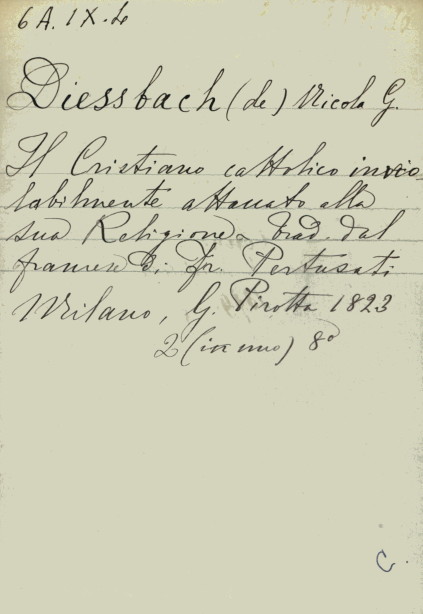 6 A. IX. 4
Diessbach (de) Nicola G.
Il Cristiano cattolico invio-
labilmente attaccato alla
sua Religione trad. dal
francese di Fr. Pertusati
Milano, G. Pirotta 1823
2 (in uno) 8º
C.